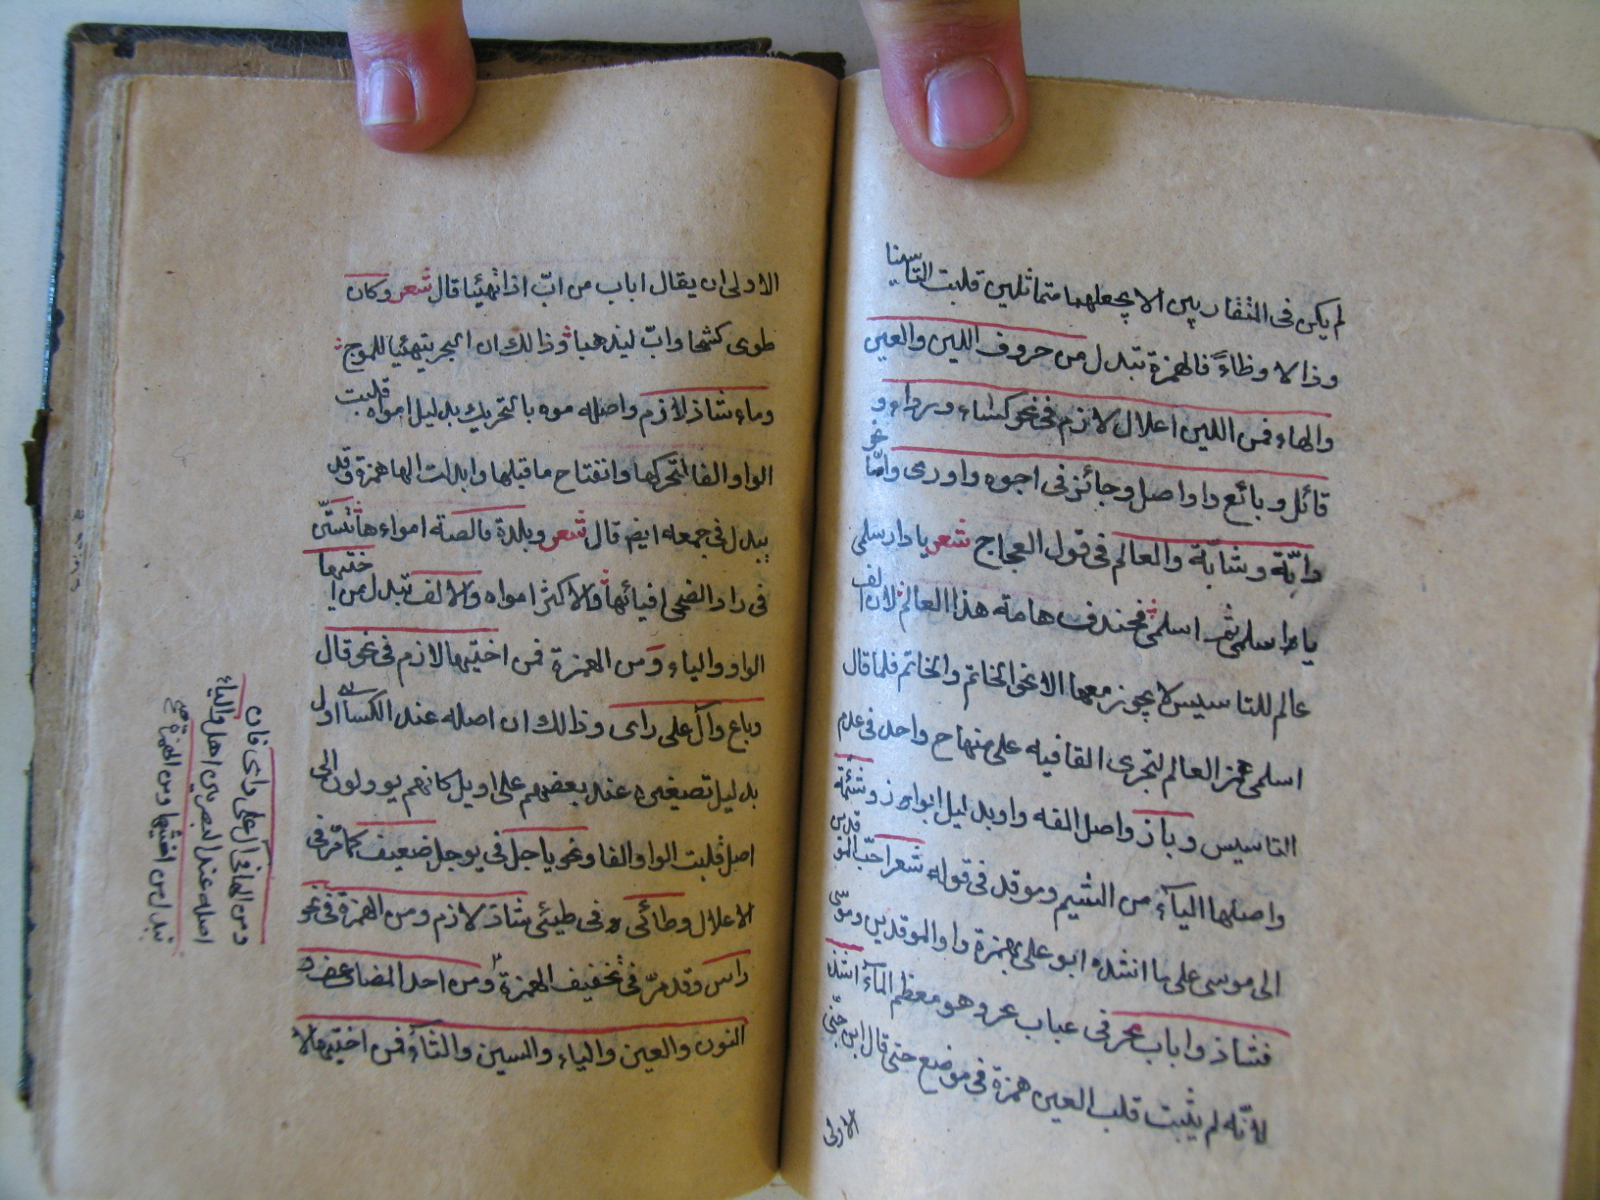 لم يكن فى المتقاربين الا بجعلهما متماثلين قلبت التا سينا
وذالا وظاءً فالهمزة تبدل من حروف اللين والعين
والهاء فمن اللين اعلال لازم فى نحو كساء ورداء و
قائل وبائع واواصل وجائز فى اجوه واورى وامّا نحو
دابّة وشابّة والعالم فى قول العجاج شعر يا دار سلمى
يا اسلمى ثم اسلمى فخندف هامة هذا العالم لان الف
عالم للتاسيس لا يجوز معها الا نحو الخاتم والخاتم فلما قال
اسلمى همز العالم لتجرى القافيه على منهاج واحد فى عدم
التاسيس وباز واصل الفه واو بدليل ابواز وشئمة
واصلها الياء من الشيم وموقد فى قوله شعر احبّ الموقدين
الى موسى على ما انشده ابو على بهمزة واو الموقدين وموسى
فشاذ واباب بحر فى عباب بحر وهو معظم الماء اشذ
لانّه لم يثبت قلب العين همزة فى موضع حتى قال ابن جنّى
الاولى
الاولى ان يقال اباب من ابّ اذا تهيّئا قال شعر وكان
طوى كشحا وابّ ليذهبا وذالك ان البحر يتهيّئا للموج
وماء شاذ لازم واصله موه بالتحريك بدليل امواه قلبت
الواو الفا لتحركها وانفتاح ما قبلها وابدلت الها همزة وقد
يبدل فى جمعه ايضم قال شعر وبلدة قالصة امواءها تستنّ
فى راد الضحى افيائها والاكثر امواه والالف تبدل من اختيها
الواو والياء ومن الهمزة فمن اختيها لازم فى نحو قال
وباع وآل على راى وذالك ان اصله عند الكسائى اول
بدليل تصغيره عند بعضهم على اويل كانهم يوولون الى
اصل قلبت الواو الفا ونحو ياجل فى يوجل ضعيف كما مرّ فى
الاعلال وطائى فى طيئى شاذ لازم ومن الهمزة فى نحو
راس وقد مرّ فى تخفيف الهمزة ومن احد المضاعف و
النون والعين والياء والسين والثاء فمن اختيها لا
ومن الها فى آل على راى فان
اصله عند البصريين اهل والياء
تبدل من اختيها ومن الهمزة